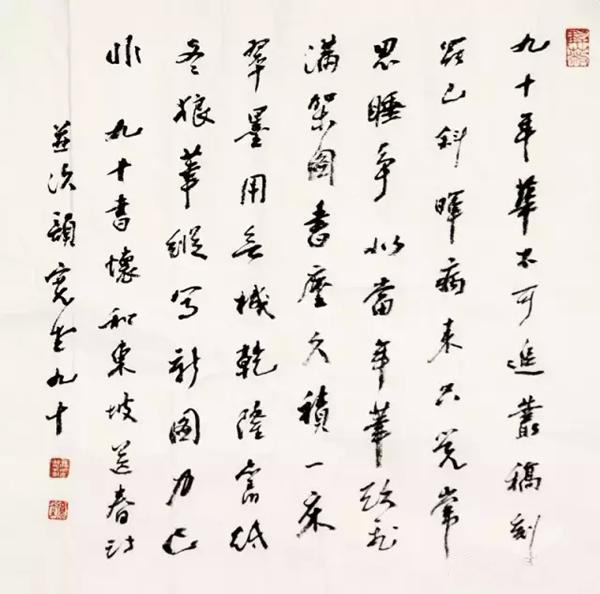 九十年華不可追叢稿刻
罷已斜暉病来只覺常
思睡爭似當年筆飛
滿架圖書塵久積一床
翠墨用無機乾隆舊紙
冬狼筆縱寫新圖力已
非 九十書懷和東坡送春詩
並次韻寬堂九十